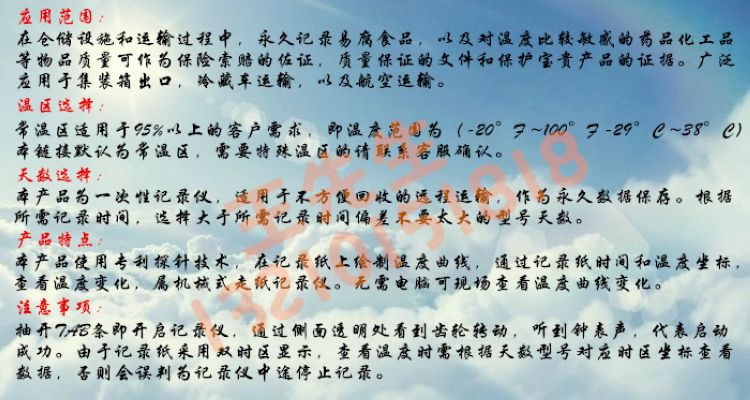 应用范围：
在仓储设施和运输过程中，永久记录易腐食品，以及对温度比较敏感的药品化工品
等物品质量可作为保险索赔的佐证，质量保证的文件和保护宝贵产品的证据。广泛
应用于集装箱出口，冷藏车运输，以及航空运输。
温区选择：
常温区适用于95%以上的客户需求，即温度范围为（-20°F~100°F -29°C~38°C)
本链接默认为常温区，需要特殊温区的请联系客服确认。
天数选择：
本产品为一次性记录仪，适用于不方便回收的远程运输，作为永久数据保存。根据
所需记录时间，选择大于所需记录时间偏差不要太大的型号天数。
产品特点：
本产品使用专利探针技术，在记录纸上绘制温度曲线，通过记录纸时间和温度坐标，
查看温度变化，属机械式走纸记录仪。无需电脑可现场查看温度曲线变化。
注意事项：
抽开TAB条即开启记录仪，通过侧面透明处看到齿轮转动，听到钟表声，代表启动
成功。由于记录纸采用双时区显示，查看温度时需根据天数型号对应时区坐标查看
数据，否则会误判为记录仪中途停止记录。